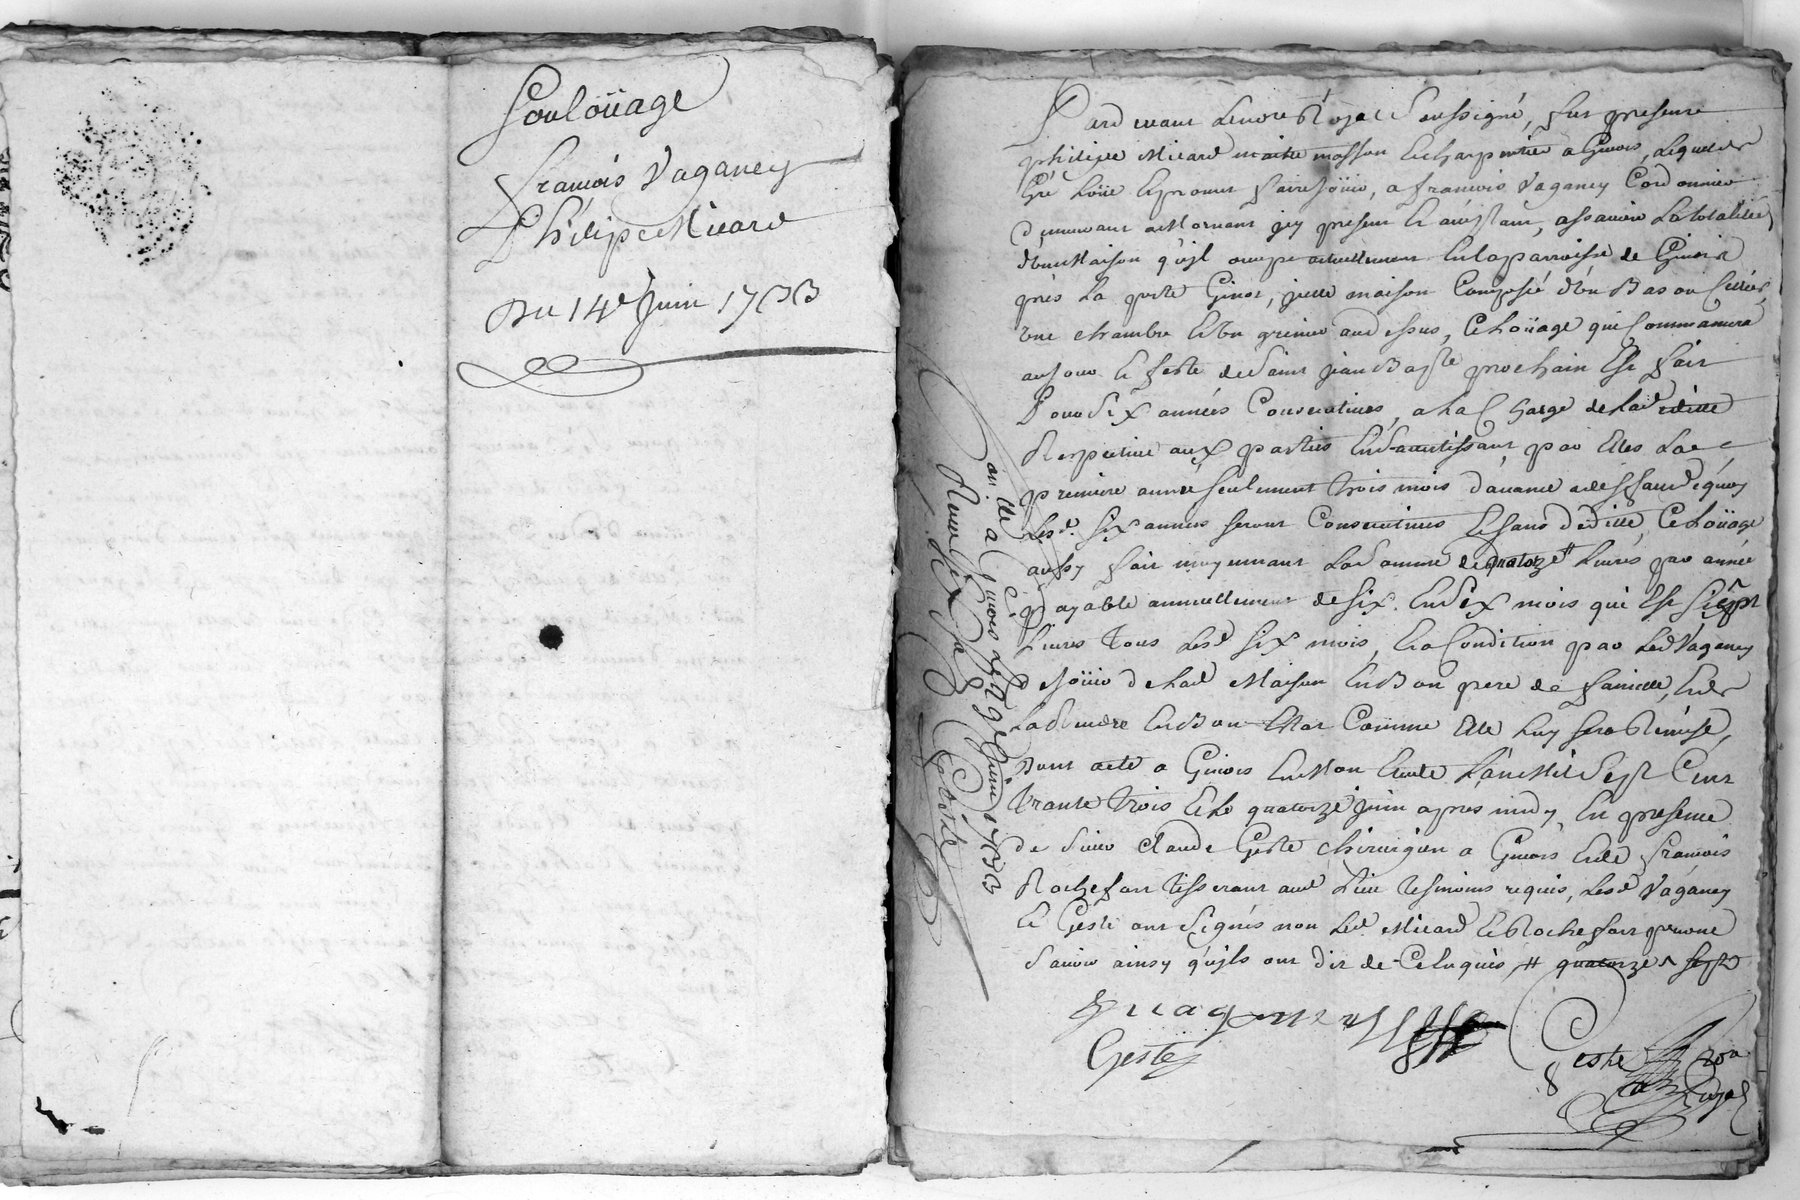 Souloüage
francois Vaganey
Philipe Micard
Du 14e Juin 1733
Pard'evant Le no.re Royal Soussigné, fut presant
philipe Micard maitre masson Echarpentier a Givors, Lequel de
Gré Loüe Epromet faire Joüir, a francois Vaganey Cordonnier
Demeurant a Mornant jcy present Et aceptant, assavoir La totalitée
d'une Maison qu'jl occupe actuellement En la parroisse de Givors
près La porte Ginot, jcelle maison Composée d'un Bas ou Cellier,
une chambre Et Un grenier au dessus, Ce Loüage qui Commancera
au Jour Et feste de Saint jean Baptiste prochain Est fait
Pour Six années Consecutives, a La Charge de La d deditte
Respective aux parties En S'avertissant par Elles La
premiere année seulement trois mois d'avance a deffaud de quoy
Les d. Six années seront Consecutives Et sans déditte, Ce Loüage
aussy fait moyennant La Somme de quatorze # Livres par année
payable annuellement de six En Six mois qui Est Sept
Livres tous Les d Six mois, Et a Condition par Led Vaganey
de Joüir de Lad Maison En Bon pere de famille, Et de
La Rendre En Bon Estat Comme Elle Luy sera Remise,
Dont acte a Givors En Mon Etude L'an Mil Sept Cent
trante trois Et Le quatorze juin apres midy En presence
de Sieur Claude Geste chirurgien a Givors Et de francois
Rochefort tisserant aud Lieu tesmoins requis, Les d Vaganey
Et Geste ont Signés non Led. Micard Et Rochefort pour ne
Scavoir ainsy qu'jls ont dit de Ce Enquis, # quatorze ^ sept
f vaganey
Geste
no.re
Royal
a Givors Le 14e Juin 1733